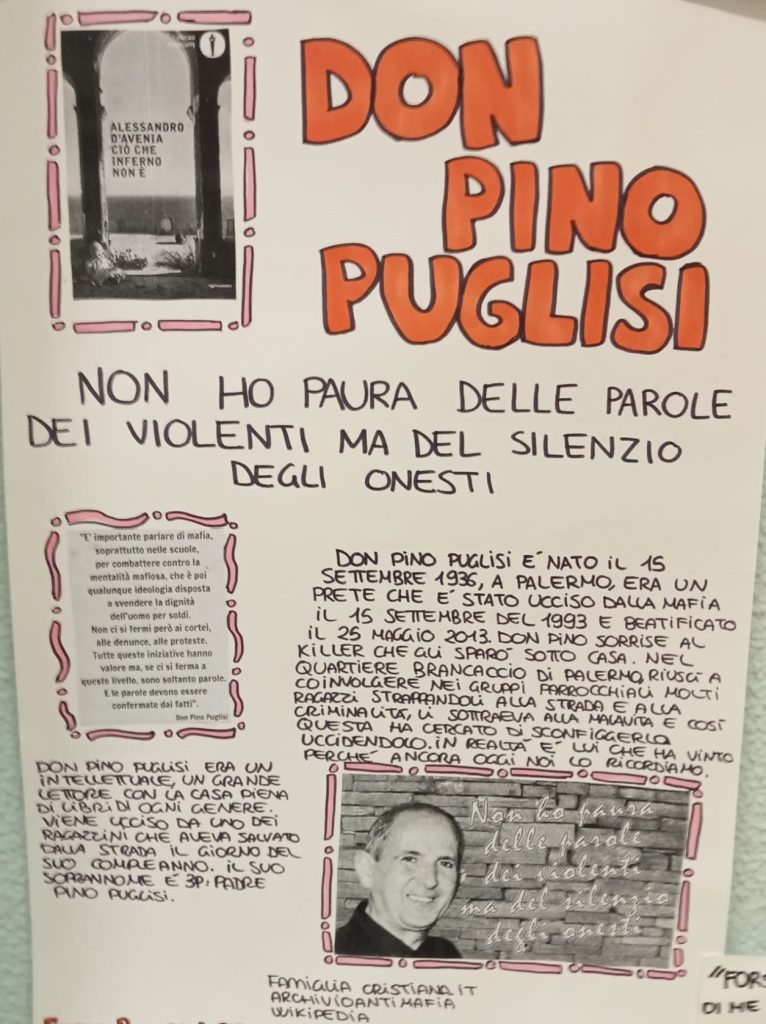 ALESSANDRO
D'AVENIA
CIÒ CHE
INFERNO
NON È
DON
PINO
PUGLISI
NON HO PAURA DELLE PAROLE
DEI VIOLENTI MA DEL SILENZIO
DEGLI ONESTI
"E' importante parlare di mafia,
soprattutto nelle scuole,
per combattere contro la
mentalità mafiosa, che è poi
qualunque ideologia disposta
a svendere la dignità
dell'uomo per soldi.
Non ci si fermi però ai cortei,
alle denunce, alle proteste.
Tutte queste iniziative hanno
valore ma, se ci si ferma a
questo livello, sono soltanto parole.
E le parole devono essere
confermate dai fatti".
Don Pino Puglisi
DON PINO PUGLISI E' NATO IL 15
SETTEMBRE 1936, A PALERMO, ERA UN
PRETE CHE E' STATO UCCISO DALLA MAFIA
IL 15 SETTEMBRE DEL 1993 E BEATIFICATO
IL 25 MAGGIO 2013. DON PINO SORRISE AL
KILLER CHE GLI SPARO' SOTTO CASA. NEL
QUARTIERE BRANCACCIO DI PALERMO, RIUSCI A
COINVOLGERE NEI GRUPPI PARROCCHIALI MOLTI
RAGAZZI STRAPPANDOLI ALLA STRADA E ALLA
CRIMINALITÀ, LI SOTTRAEVA ALLA MALAVITA E COSÌ
QUESTA HA CERCATO DI SCONFIGGERLO
UCCIDENDOLO. IN REALTA' E' LUI CHE HA VINTO
PERCHE' ANCORA OGGI NOI LO RICORDIAMO.
DON PINO PUGLISI ERA UN
INTELLETTUALE, UN GRANDE
LETTORE CON LA CASA PIENA
DI LIBRI DI OGNI GENERE.
VIENE UCCISO DA UNO DEI
RAGAZZINI CHE AVEVA SALVATO
DALLA STRADA IL GIORNO DEL
SUO COMPLEANNO. IL SUO
SOPRANNOME È 3P: PADRE
PINO PUGLISI.
Non ho paura
delle parole
dei violenti
ma del silenzio
degli onesti
FAMIGLIA CRISTIANA.IT
ARCHIVIOANTIMAFIA
WIKIPEDIA
"FORS
DI ME